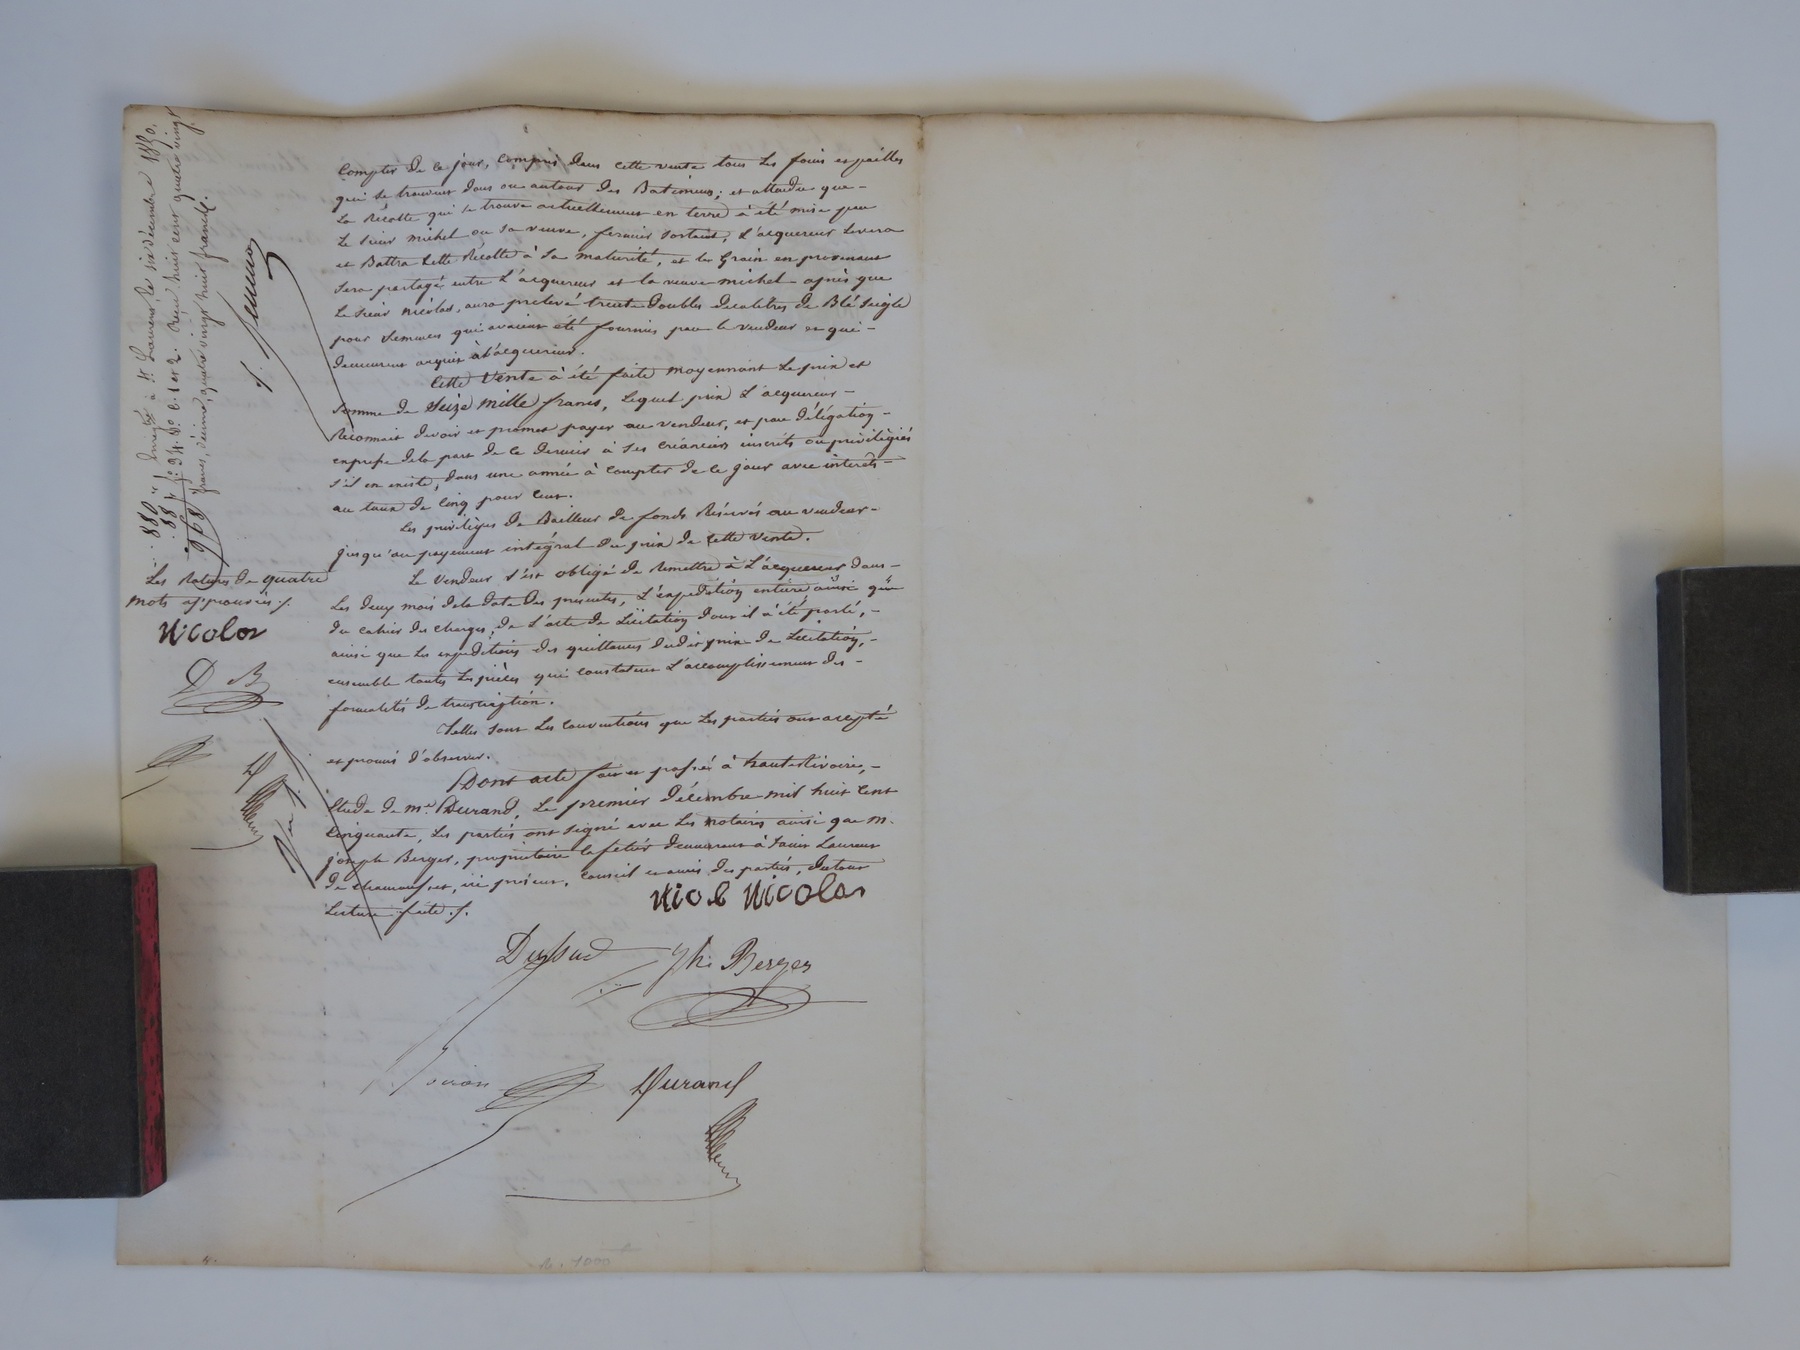 compter de ce jour, compris dans cette vente tous les foins et pailles
qui se trouvent dans ou autour des Batimens; et attendu que -
la Récolte qui se trouve actuellement en terre à été mise par
le sieur michel ou sa veuve, fermier sortant, l'acquereur levera
et Battra cette Récolte à sa maturité, et le Grain en provenant
sera partagé entre l'acquereur et la veuve michel - après que
le sieur nicolas, aura prelevé trente doubles decalitres de Blé seigle
pour semences qui avaient été fournies par le vendeur et qui -
demeurent acquis à l'acquereur.
Cette vente à été faite moyennant le prix et
somme de Seize Mille francs, lequel prix l'acquereur -
Reconnait devoir et promet payer au vendeur, et par délégation -
expresse de la part de ce dernier à ses créanciers inscrits ou privilégiés
s'il en existe, dans une année à compter de ce jour avec interets -
au taux de cinq pour cent.
Les privilèges de Bailleur de fonds Réservés au vendeur -
jusqu'au payement intégral du prix de cette vente.
Le vendeur s'est obligé de Remettre à l'acquereur dans -
les deux mois de la date des presentes, l'expedition entière, ainsi que
du cahier des charges, de l'acte de Licitation dont il à été parlé, -
ainsi que les expeditions des quittances dudit prix de Licitation, -
ensemble toutes les pièces qui constatent l'accomplissement des -
formalités de transcription.
Telles sont les conventions que les parties ont accepté
et promis d'observer.
Dont acte fait et passé à hauterivoire, -
Etude de me. Durand, Le premier décembre mil huit cent
Cinquante, Les parties ont signé avec les notaires ainsi que m.
joseph Berger, propriétaire cafetier demeurant à saint Laurent
de chamousset, ici présent, conseil et amis des parties, du tout
Lecture faite ./.
Nicolas
Jh. Berger
Durand
880 " Enregtré à St Laurent, le six décembre 1850,
88 fo. 94. Vo. c. 1 et 2. Reçu huit cent quatre vingt
968 francs, décime, quatre vingt huit francs.
Les Ratures de quatre
mots approuvées ./.
Nicolas
D B
D